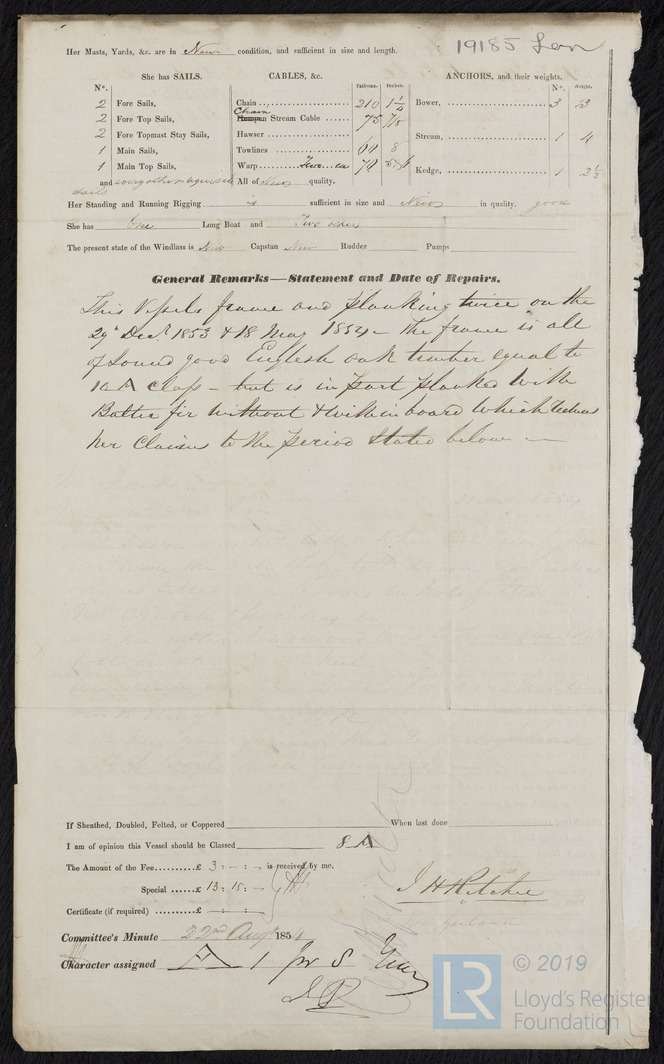 19185 Lon
Her Masts, Yards, &c. are in New condition, and sufficient in size and length.
She has SAILS. CABLES, &c. ANCHORS, and their weights.
N°. Fathoms. Inches. N°. Weight.
2 Fore Sails, Chain 210 1 1/4 Bower, 3
2 Fore Top Sails, Chain Stream Cable 75 7/8
2 Fore Topmast Stay Sails, Hawser Stream, 1 4
1 Main Sails, Towlines 64 8
1 Main Top Sails, Warp Two 74 Kedge, 1 2 1/2
and every other requisite sails All of New quality.
Her Standing and Running Rigging is sufficient in size and New in quality. good
She has One Long Boat and Two other
The present state of the Windlass is New Capstan New Rudder Pumps
General Remarks—Statement and Date of Repairs.
This Vessels frame and planking twice on the
29th Decr 1853 & 18 May 1854 - The frame is all
of sound good English oak timber equal to
10 A Class - but is in part planked with
Baltic fir without & within board which reduces
her Claims to the period stated below
If Sheathed, Doubled, Felted, or Coppered When last done
I am of opinion this Vessel should be Classed 8 A
The Amount of the Fee £ 3 : - : - is received by me,
Special £ 13 : 15 : -
J H Ritchie
Certificate (if required) £ - : - : -
Committee's Minute 22nd Augt 1854
Character assigned A 1 for 8 Years
LR
© 2019
Lloyd's Register
Foundation